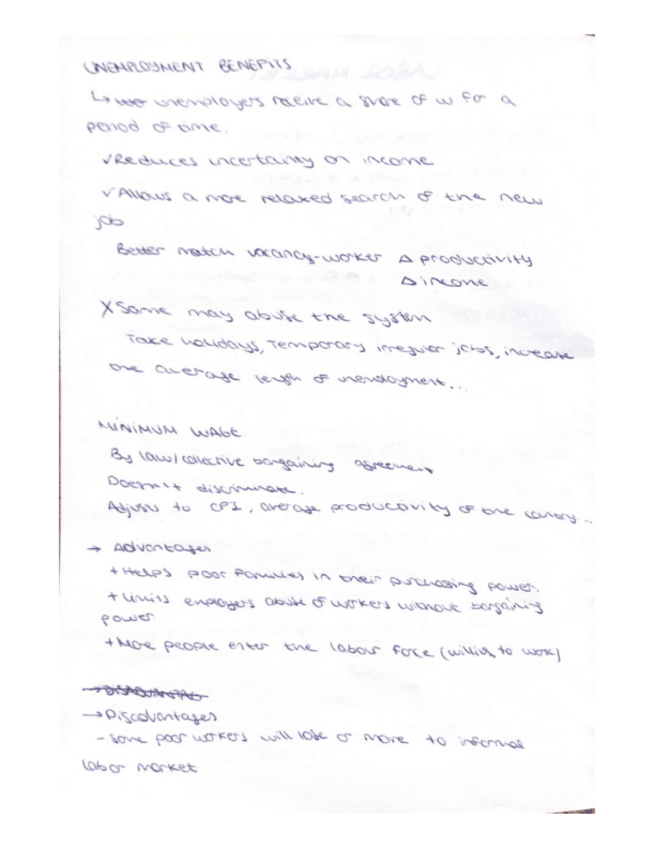 UNEMPLOYMENT BENEFITS
↳ unemployers receive a share of w for a
period of time.
✓Reduces uncertainty on income
✓Allows a more relaxed search of the new
job
Better match vacancy-worker Δ productivity
Δ income
X Some may abuse the system
Take holidays, temporary irregular jobs, increase
the average length of unemployment...
MINIMUM WAGE
By law/colective bargaining agreement
Doesn't discriminate.
Adjusts to CPI, average productivity of the country...
→ Advantages
+ Helps poor families in their purchasing power.
+ Limits employers abuse of workers without bargaining
power.
+ More people enter the labour force (willing to work)
→ Disadvantages
- some poor workers will lose or move to informal
labor market